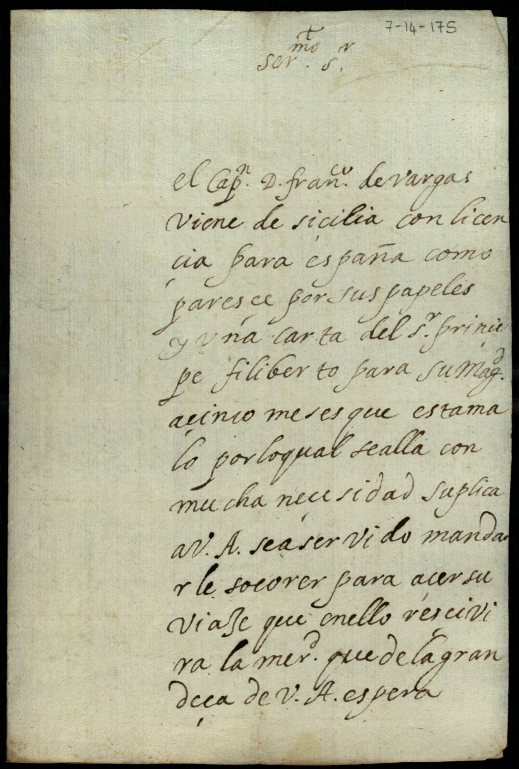 7-14-175
Ser.mo S.r
el Capn. D. franco. de vargas
viene de sicilia con licen
cia para españa como
paresce por sus papeles
y una carta del s.r princi
pe filiberto para su Magd.
acinco meses que esta ma
lo porloqual sealla con
mucha necesidad suplica
aV. A. sea servido manda
rle socorer para acer su
viaje que enello rescivi
ra la merd. que de la gran
deça de V. A. espera